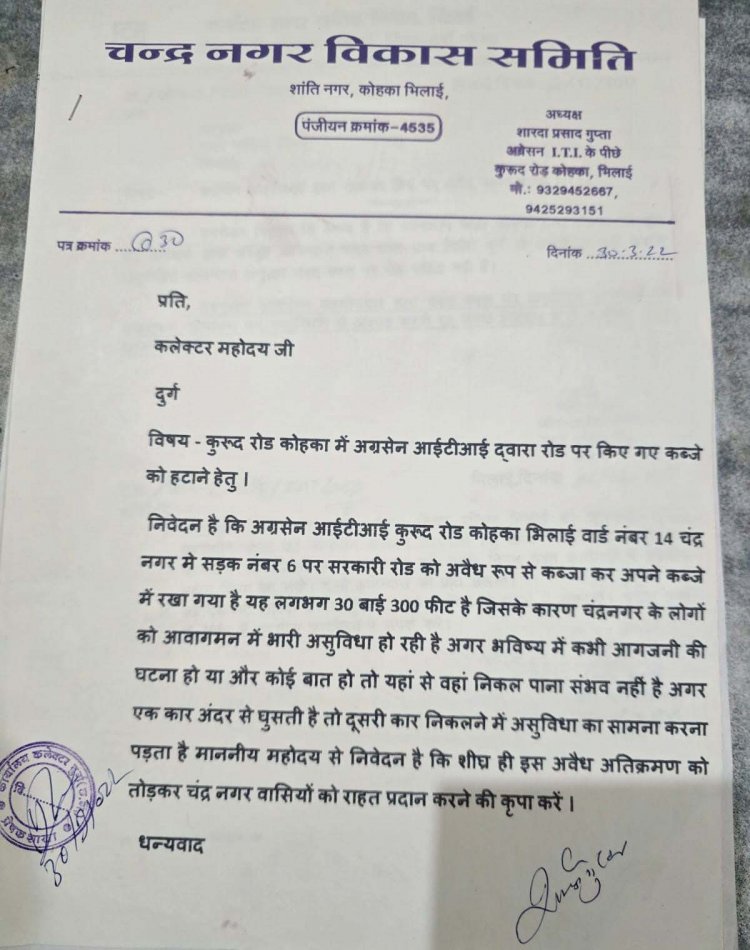 चन्द्र नगर विकास समिति
शांति नगर, कोहका भिलाई,
पंजीयन क्रमांक-4535
अध्यक्ष
शारदा प्रसाद गुप्ता
अग्रेसन I.T.I. के पीछे
कुरूद रोड़ कोहका, भिलाई
मो.: 9329452667,
9425293151
पत्र क्रमांक ....030
दिनांक ..30.3.22
प्रति,
कलेक्टर महोदय जी
दुर्ग
विषय - कुरूद रोड कोहका में अग्रसेन आईटीआई द्वारा रोड पर किए गए कब्जे
को हटाने हेतु ।
निवेदन है कि अग्रसेन आईटीआई कुरूद रोड कोहका भिलाई वार्ड नंबर 14 चंद्र
नगर मे सड़क नंबर 6 पर सरकारी रोड को अवैध रूप से कब्जा कर अपने कब्जे
में रखा गया है यह लगभग 30 बाई 300 फीट है जिसके कारण चंद्रनगर के लोगों
को आवागमन में भारी असुविधा हो रही है अगर भविष्य में कभी आगजनी की
घटना हो या और कोई बात हो तो यहां से वहां निकल पाना संभव नहीं है अगर
एक कार अंदर से घुसती है तो दूसरी कार निकलने में असुविधा का सामना करना
पड़ता है माननीय महोदय से निवेदन है कि शीघ्र ही इस अवैध अतिक्रमण को
तोड़कर चंद्र नगर वासियों को राहत प्रदान करने की कृपा करें ।
धन्यवाद